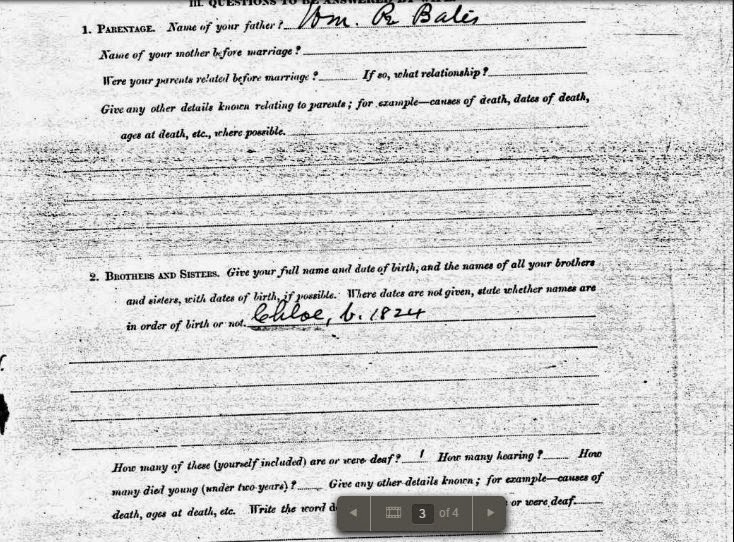 III. QUESTIONS TO BE ANSWERED BY
1. PARENTAGE. Name of your father? Wm. R Bates
Name of your mother before marriage?
Were your parents related before marriage? If so, what relationship?
Give any other details known relating to parents; for example—causes of death, dates of death,
ages at death, etc., where possible.
2. BROTHERS AND SISTERS. Give your full name and date of birth, and the names of all your brothers
and sisters, with dates of birth, if possible. Where dates are not given, state whether names are
in order of birth or not. Chloe, b. 1824
How many of these (yourself included) are or were deaf? 1 How many hearing? How
many died young (under two years)? Give any other details known; for example—causes of
death, ages at death, etc. Write the word or were deaf.
3 of 4